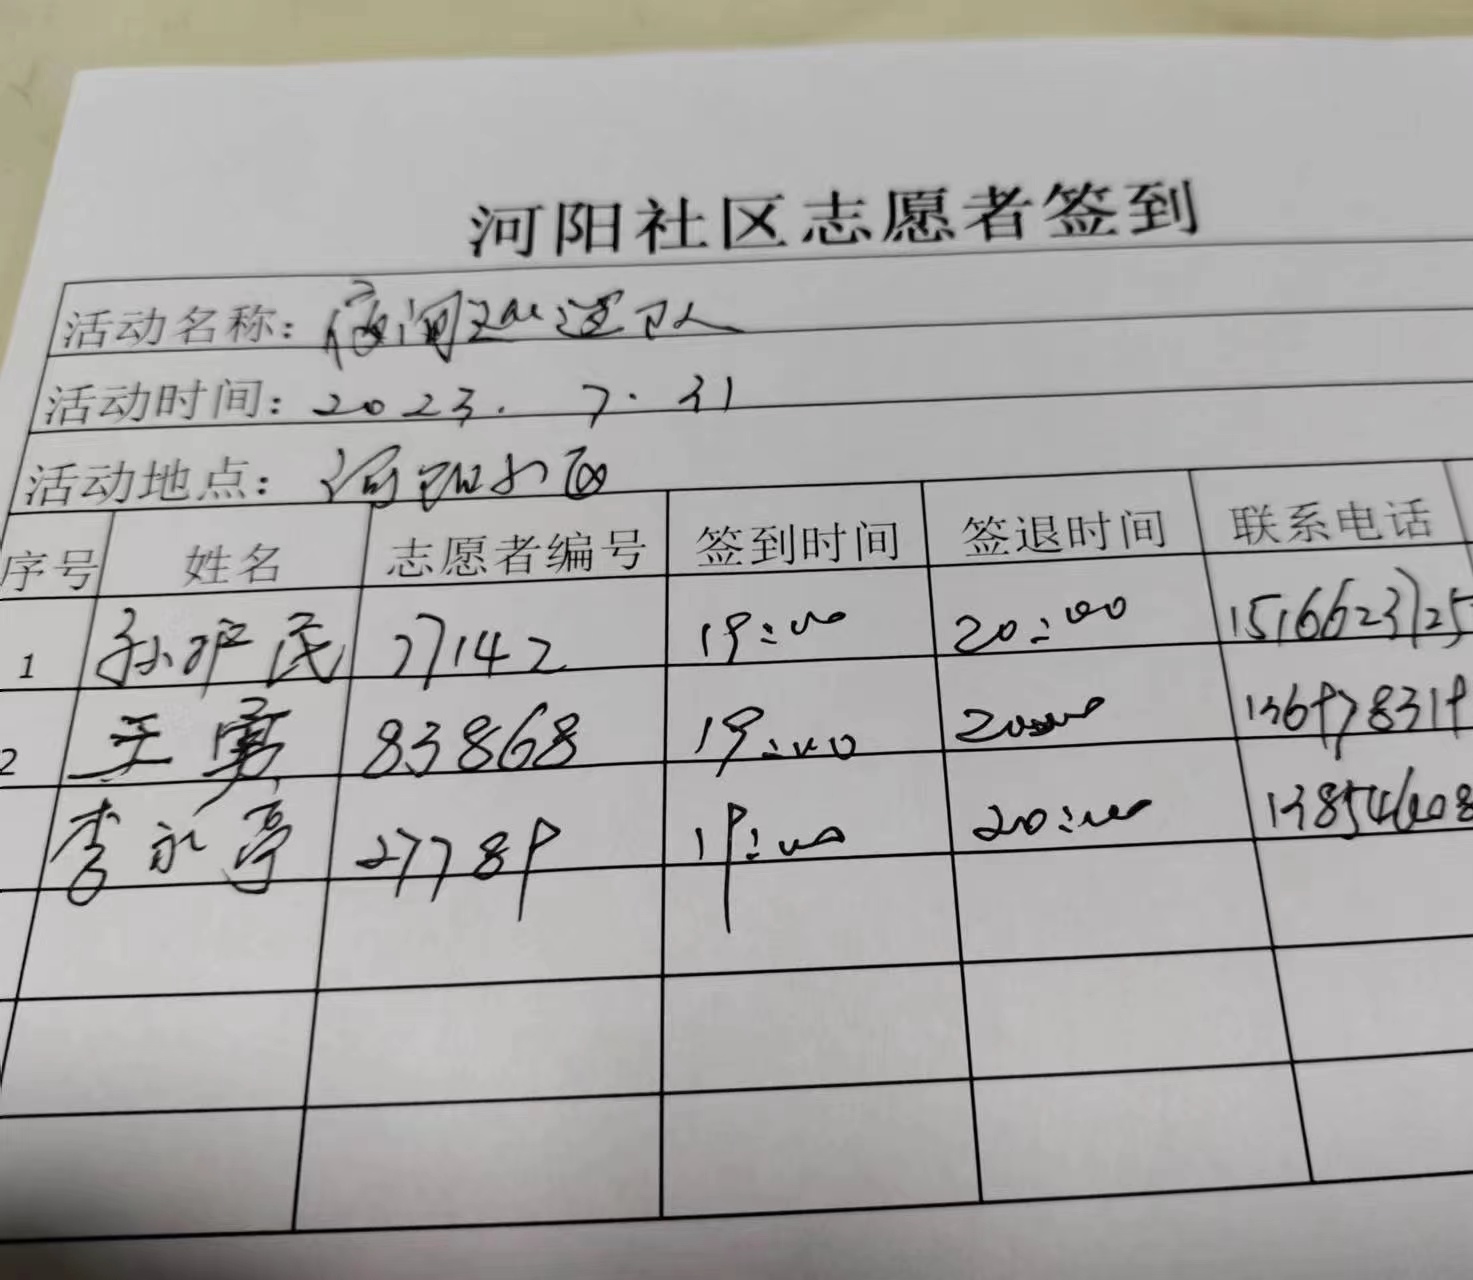 河阳社区志愿者签到
活动名称：夜间巡逻队
活动时间：2023.7.31
活动地点：河阳小区
序号 姓名 志愿者编号 签到时间 签退时间 联系电话
1 孙护民 27142 19:00 20:00 15166237125
2 王勇 83868 19:00 20:00 136978319
李永亭 27789 19:00 20:00